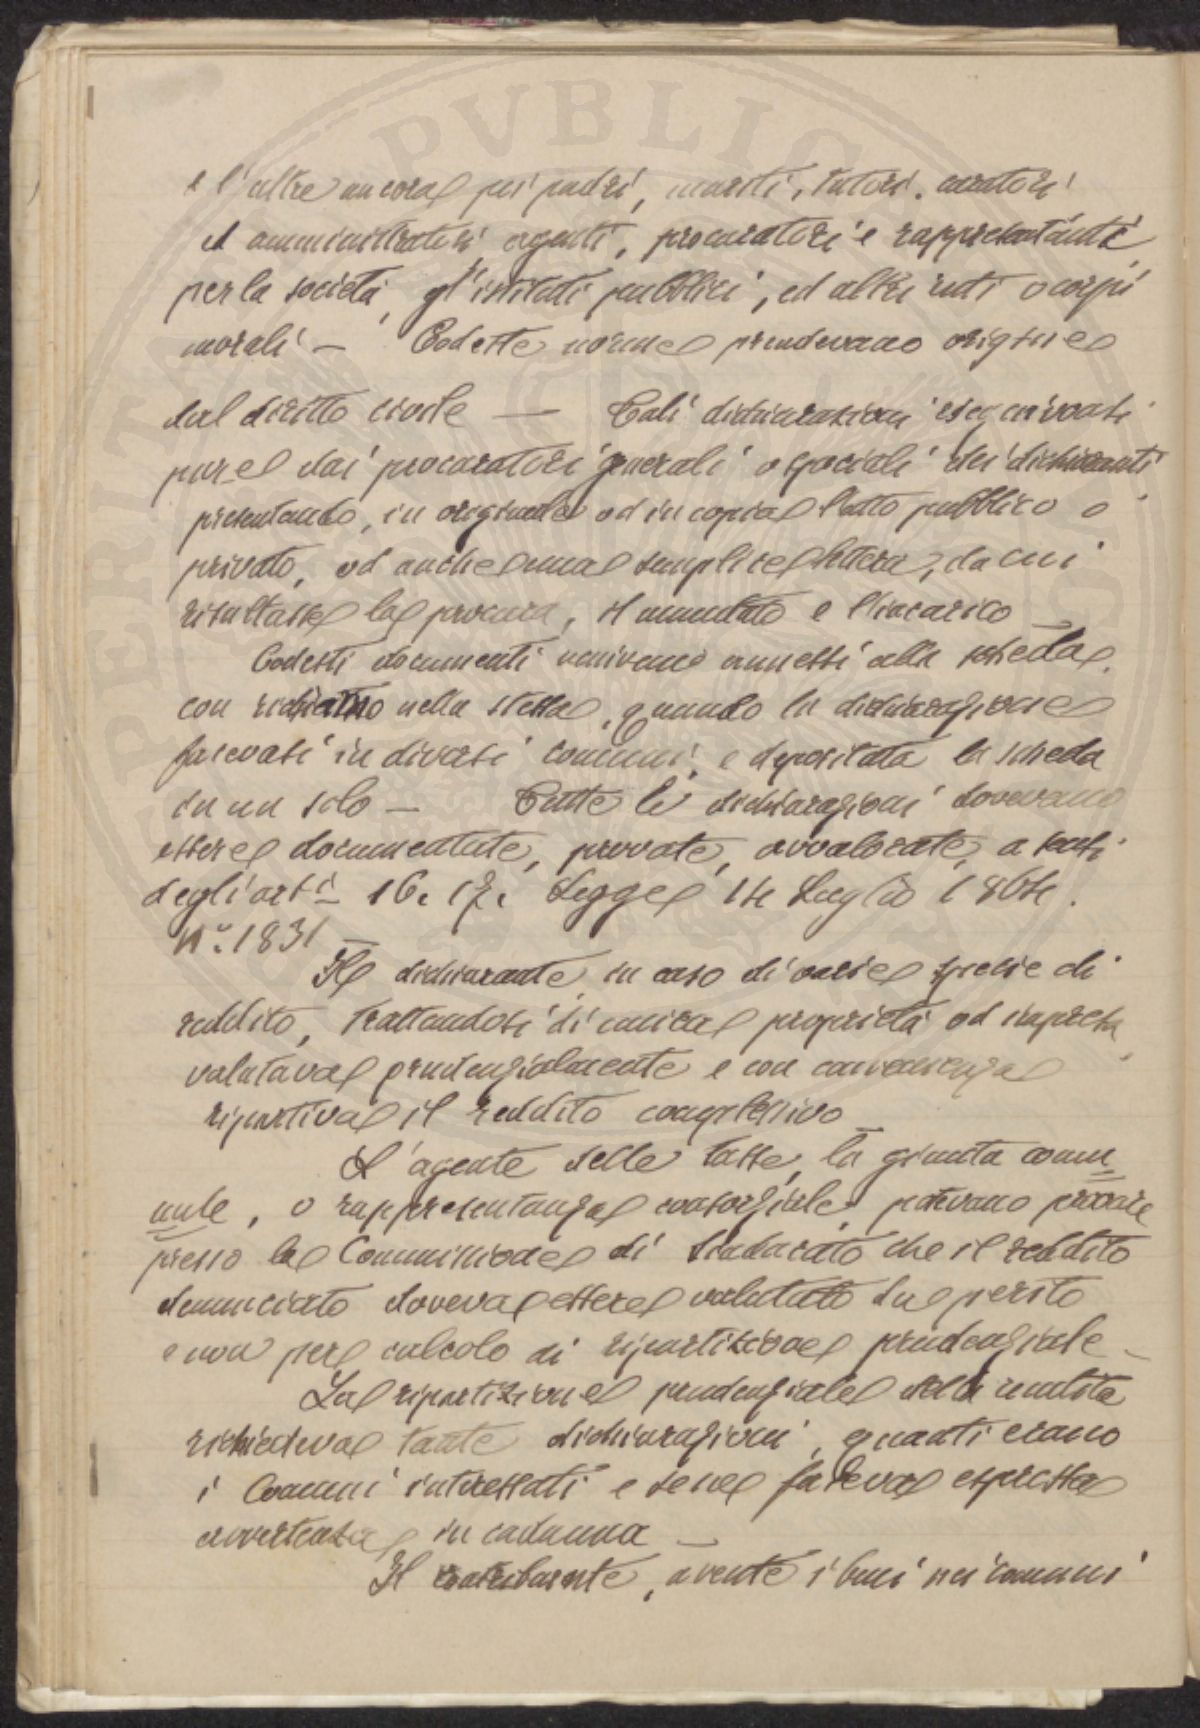 e l'altre ancora pei padri, mariti, tutori, curatori
ed amministratori agenti, procuratori e rappresentanti
per la società, gl'istituti pubblici, ed altri enti o corpi
morali — Codeste norme prendevano origine
dal diritto civile — Tali dichiarazioni eseguivansi
pure dai procuratori generali o speciali dei dichiaranti
presentando, in originale od in copia l'atto pubblico o
privato, od anche una semplice lettera, da cui
risultasse la procura, il mandato e l'incarico —
Codesti documenti venivano annessi alla scheda,
con richiamo nella stessa, quando la dichiarazione
facevasi in diversi comuni, e depositata la scheda
in un solo — Tutte le dichiarazioni dovevano
essere documentate, provate, avvalorate, a sensi
degli arti 16. 17. Legge 14 Luglio 1864.
N.º 1831 —
Il dichiarante, in caso di varie specie di
reddito, trattandosi di unica proprietà od impresa,
valutava prudenzialmente e con
ripartiva il reddito complessivo —
L'agente delle tasse, la giunta comu=
nale, o rappresentanza consorziale, potevano provare
presso la Commissione di Sindacato che il reddito
denunciato doveva essere valutato da perito
e non per calcolo di ripartizione prudenziale —
La ripartizione prudenziale della rendita
richiedeva tante dichiarazioni, quanti erano
i Comuni interessati e se ne faceva espressa
avvertenza in cadauna —
Il contribuente, avente i beni nei comuni
PERITAS PVBLICA